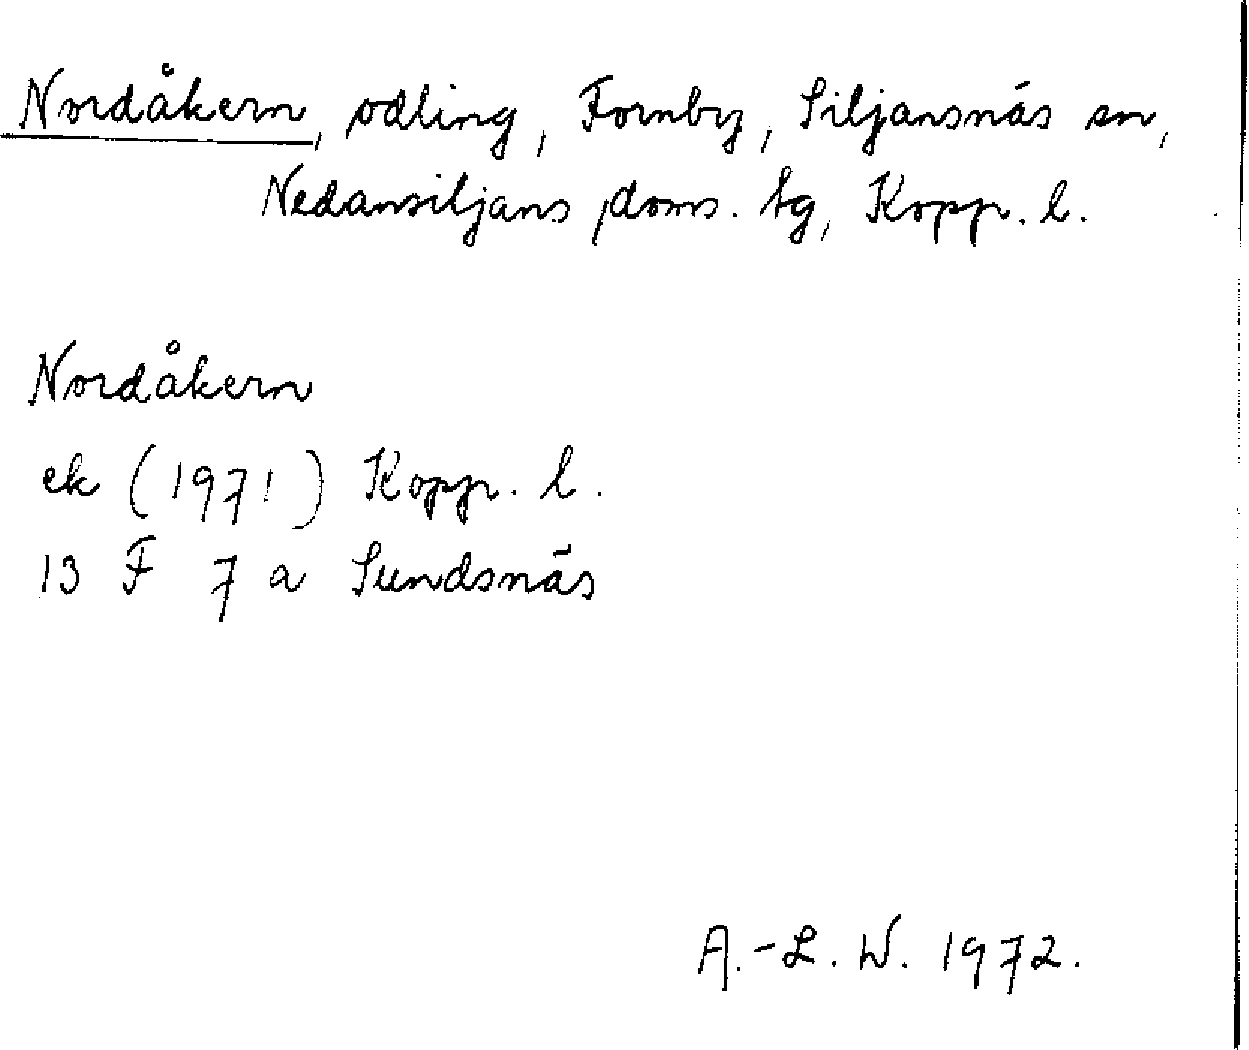 Nordåkern, odling, Fornby, Siljansnäs sn,
Nedansiljans doms. tg, Kopp. l.
Nordåkern
ek (1971) Kopp. l.
13 F 7 a Sundsnäs
A.-L. W. 1972.